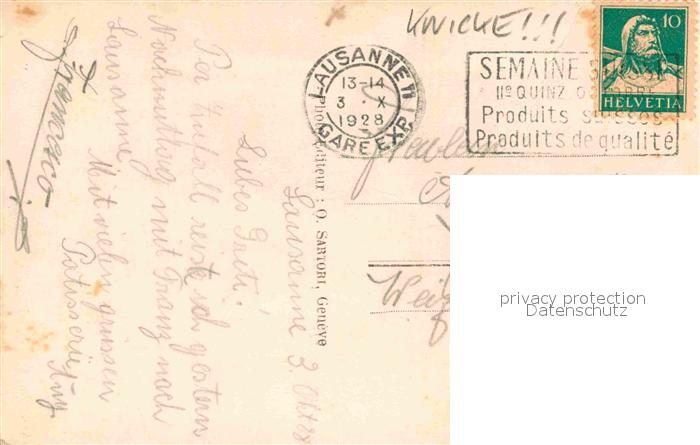 KNICKE!!!
10
HELVETIA
LAUSANNE 11
13-14
3 . X
1928
GARE EXP.
SEMAINE
IIe QUINZ
Produits
Produits de qualité
Photo-Editeur : O. SARTORI, Genève
Lausanne 3. Okt
Liebes
Per Zufall reiste ich gestern
Nachmittag mit Franz nach
Lausanne.
Mit vielen grüssen
Francesco
privacy protection
Datenschutz